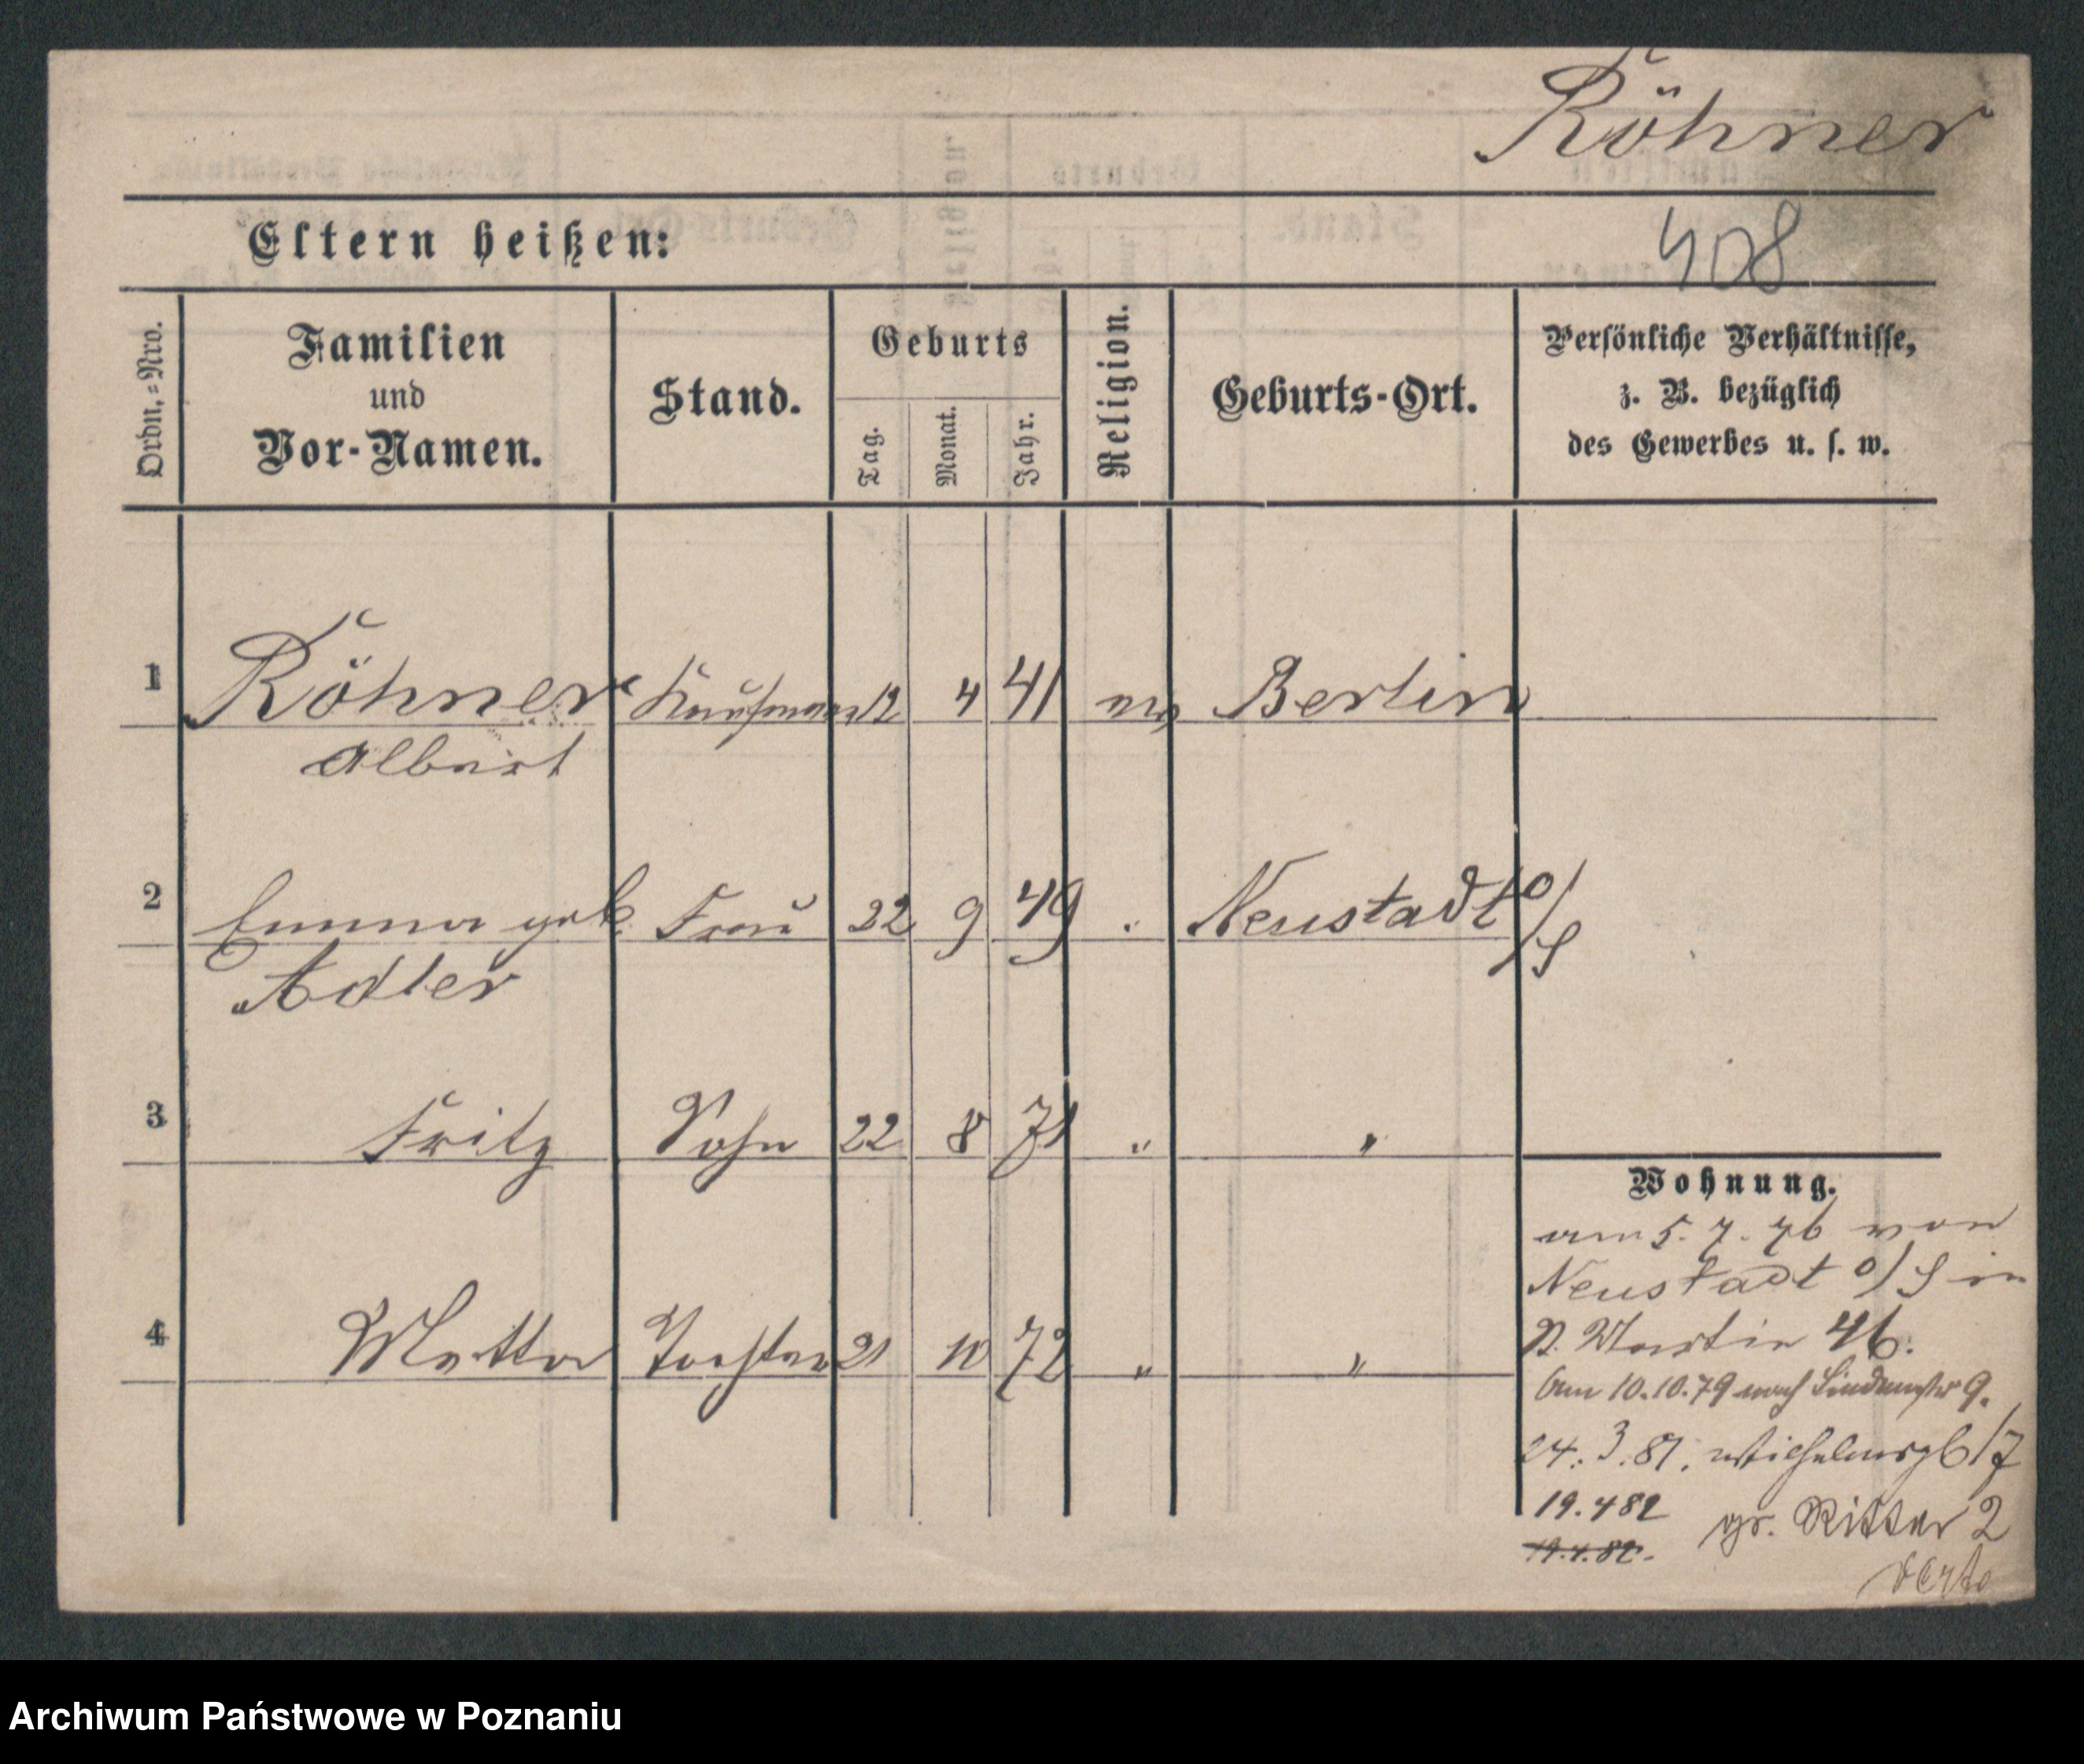 Röhner
408
Eltern heißen:
Ordn.=Nro.
Familien
und
Vor-Namen.
Stand.
Geburts
Tag.
Monat.
Jahr.
Religion.
Geburts-Ort.
Persönliche Verhältnisse,
z. B. bezüglich
des Gewerbes u. s. w.
1 Röhner Kaufmann 12 4 41 Berlin
Albert
2 Emma geb. Frau 22 9 49 " Neustadt o/S
Adler
3 Fritz Sohn 22 8 71 " "
4 Tochter 21 10 72 " "
Wohnung.
am 5.7.76 von
Neustadt o/S in
St. Martin 46.
Am 10.10.79 nach Lindenstr 9.
24.3.81. Wilhelmspl 6/7
19.482 gr. Ritter 2
19.4.82.
verte
Archiwum Państwowe w Poznaniu